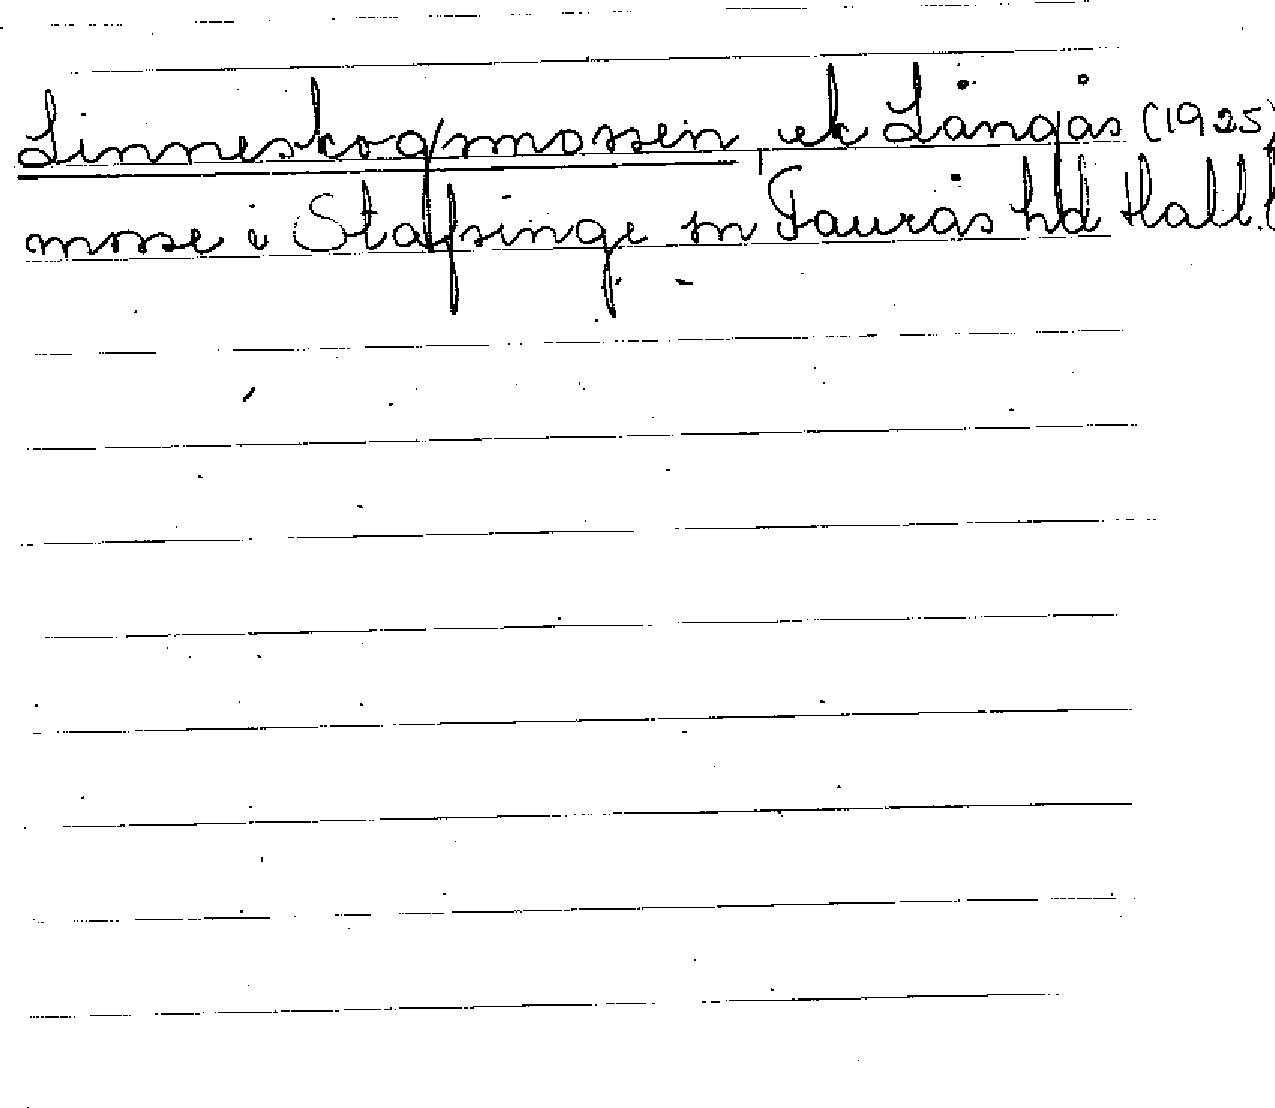 Linneskogmossen, ek Långås (1925)
mosse i Stafsinge sn Faurås hd Hall. (